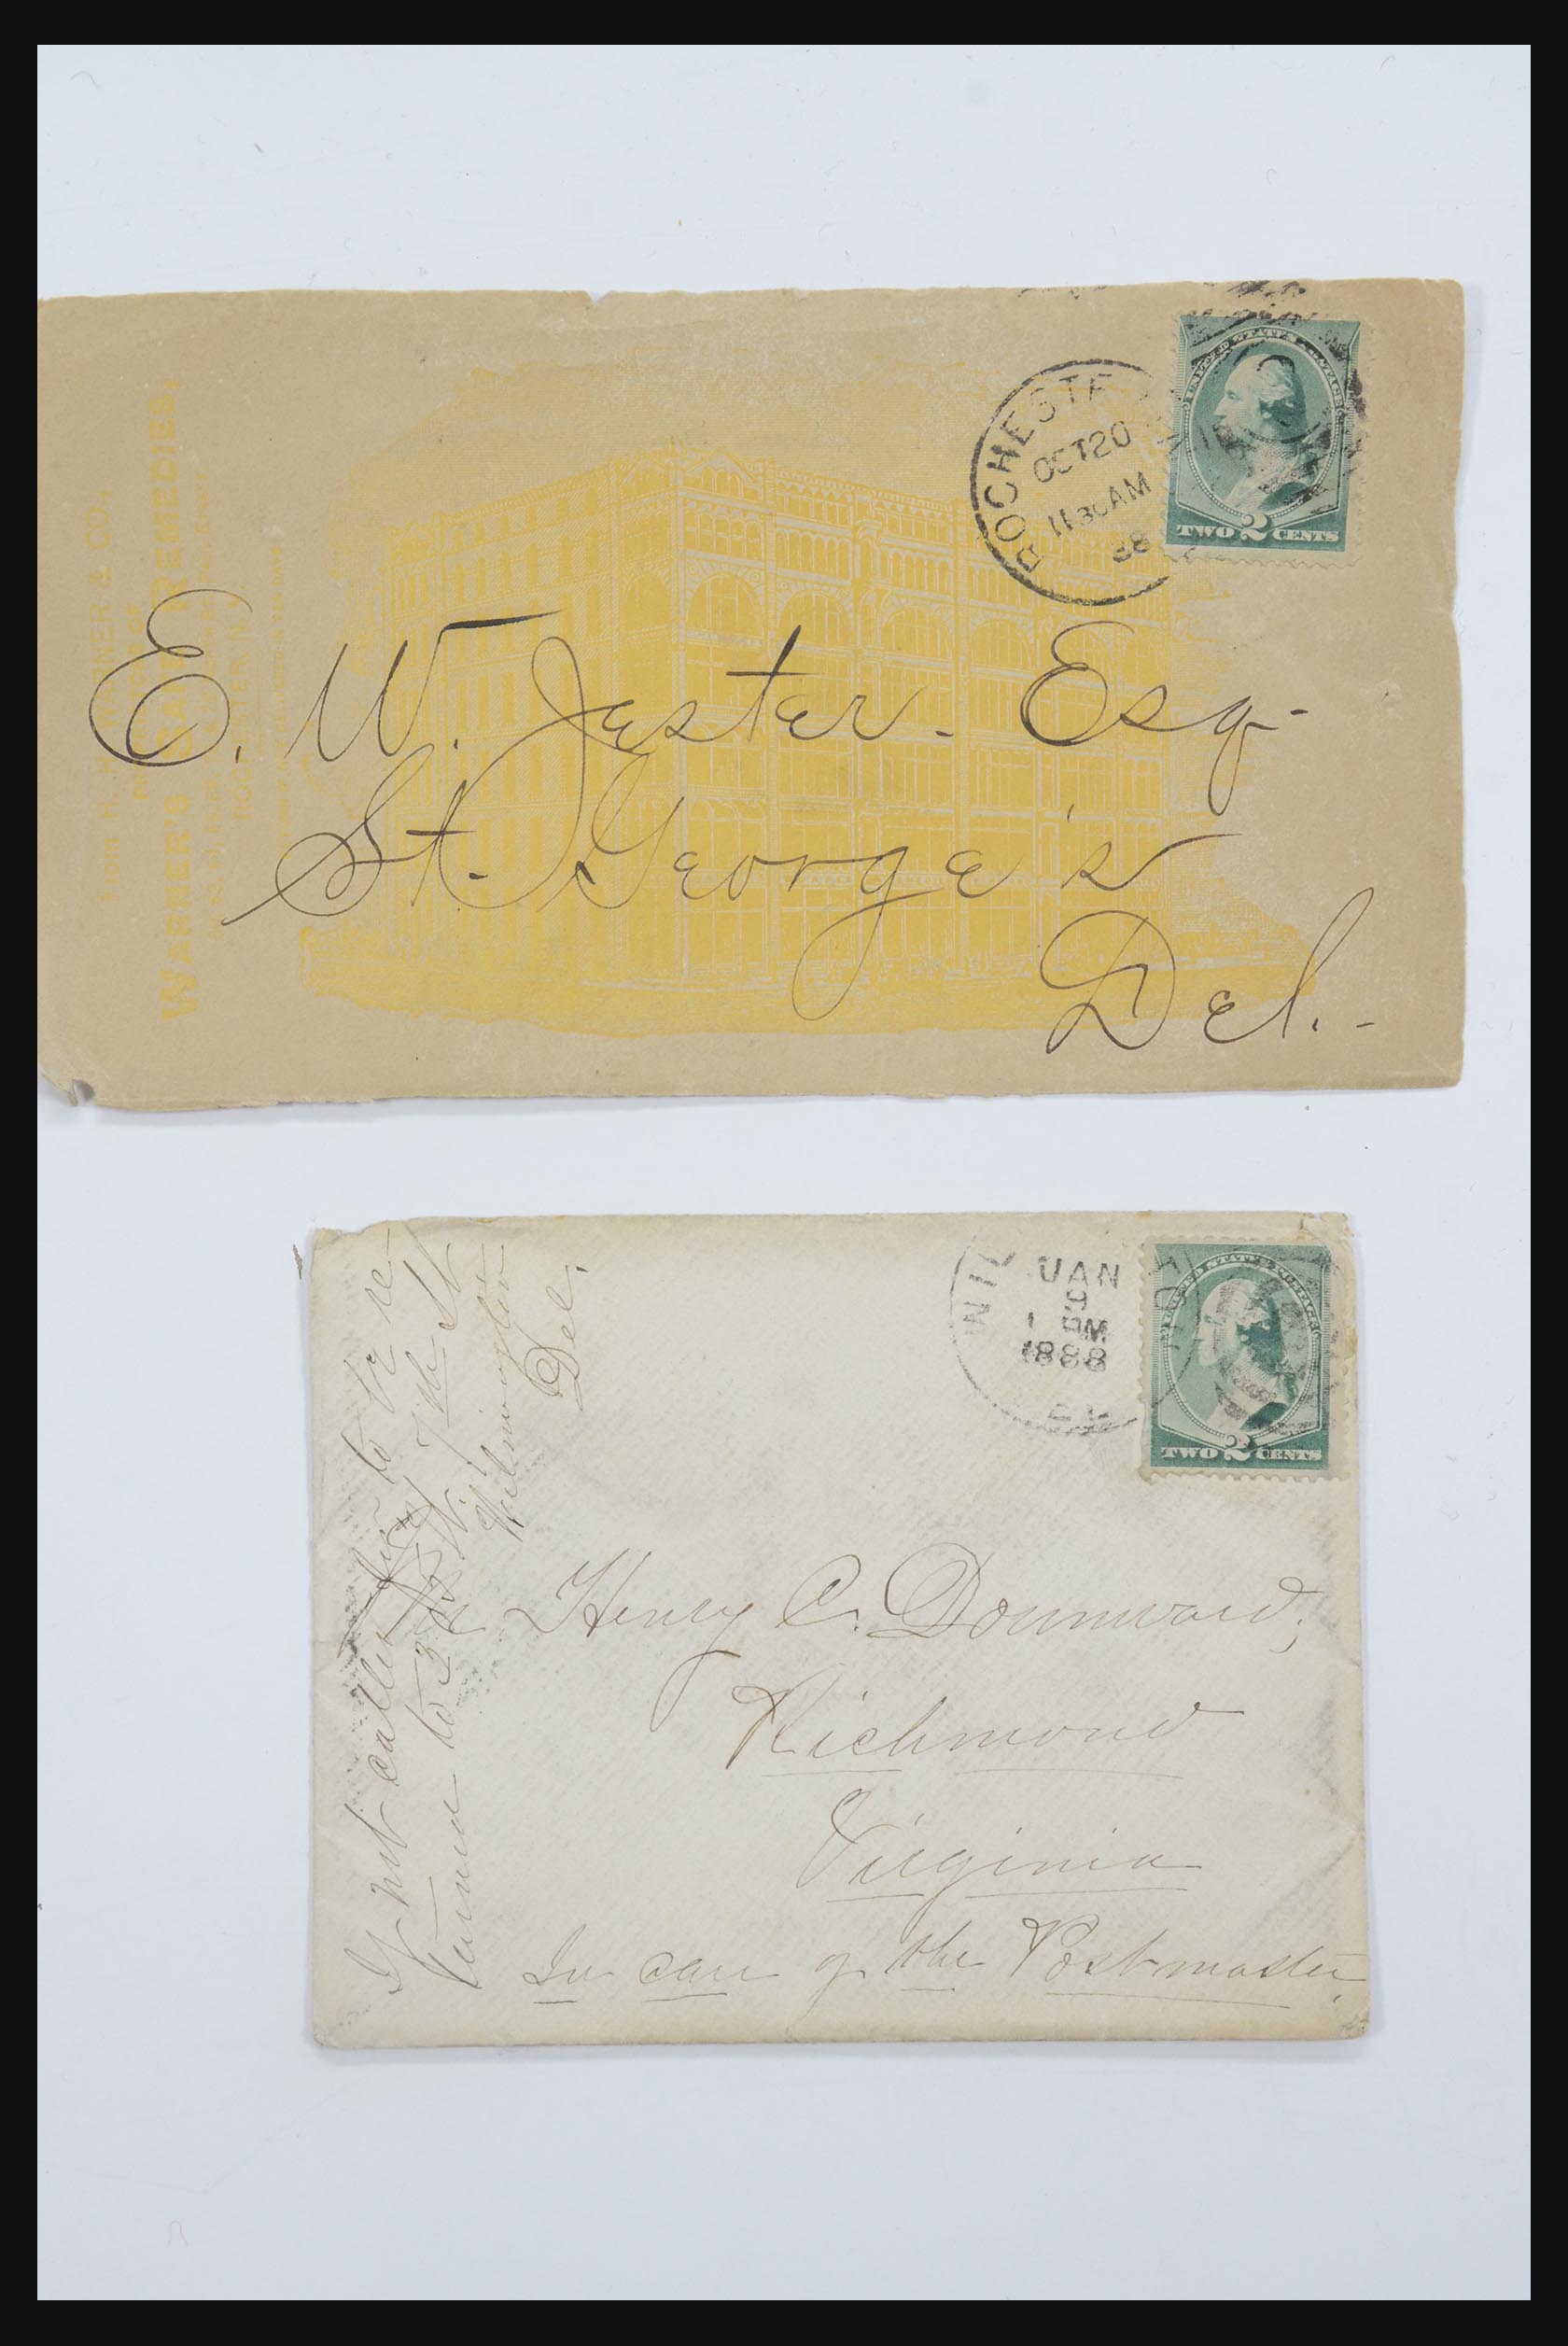 From H. H. WARNER & CO.,
WARNER'S SAFE REMEDIES,
ROCHESTER, N.Y.
ROCHESTE
OCT 20
11 30 AM
88
UNITED STATES POSTAGE
TWO 2 CENTS
E. W. Jester. Esq-
St. George's
Del.-
WIL
JAN
9
1 PM
1888
DEL
UNITED STATES POSTAGE
TWO 2 CENTS
If not called for to be re-
turned to W. 7th St
Wilmington
Del.
Henry C. Downward,
Richmond
Virginia
In care of the Postmaster.